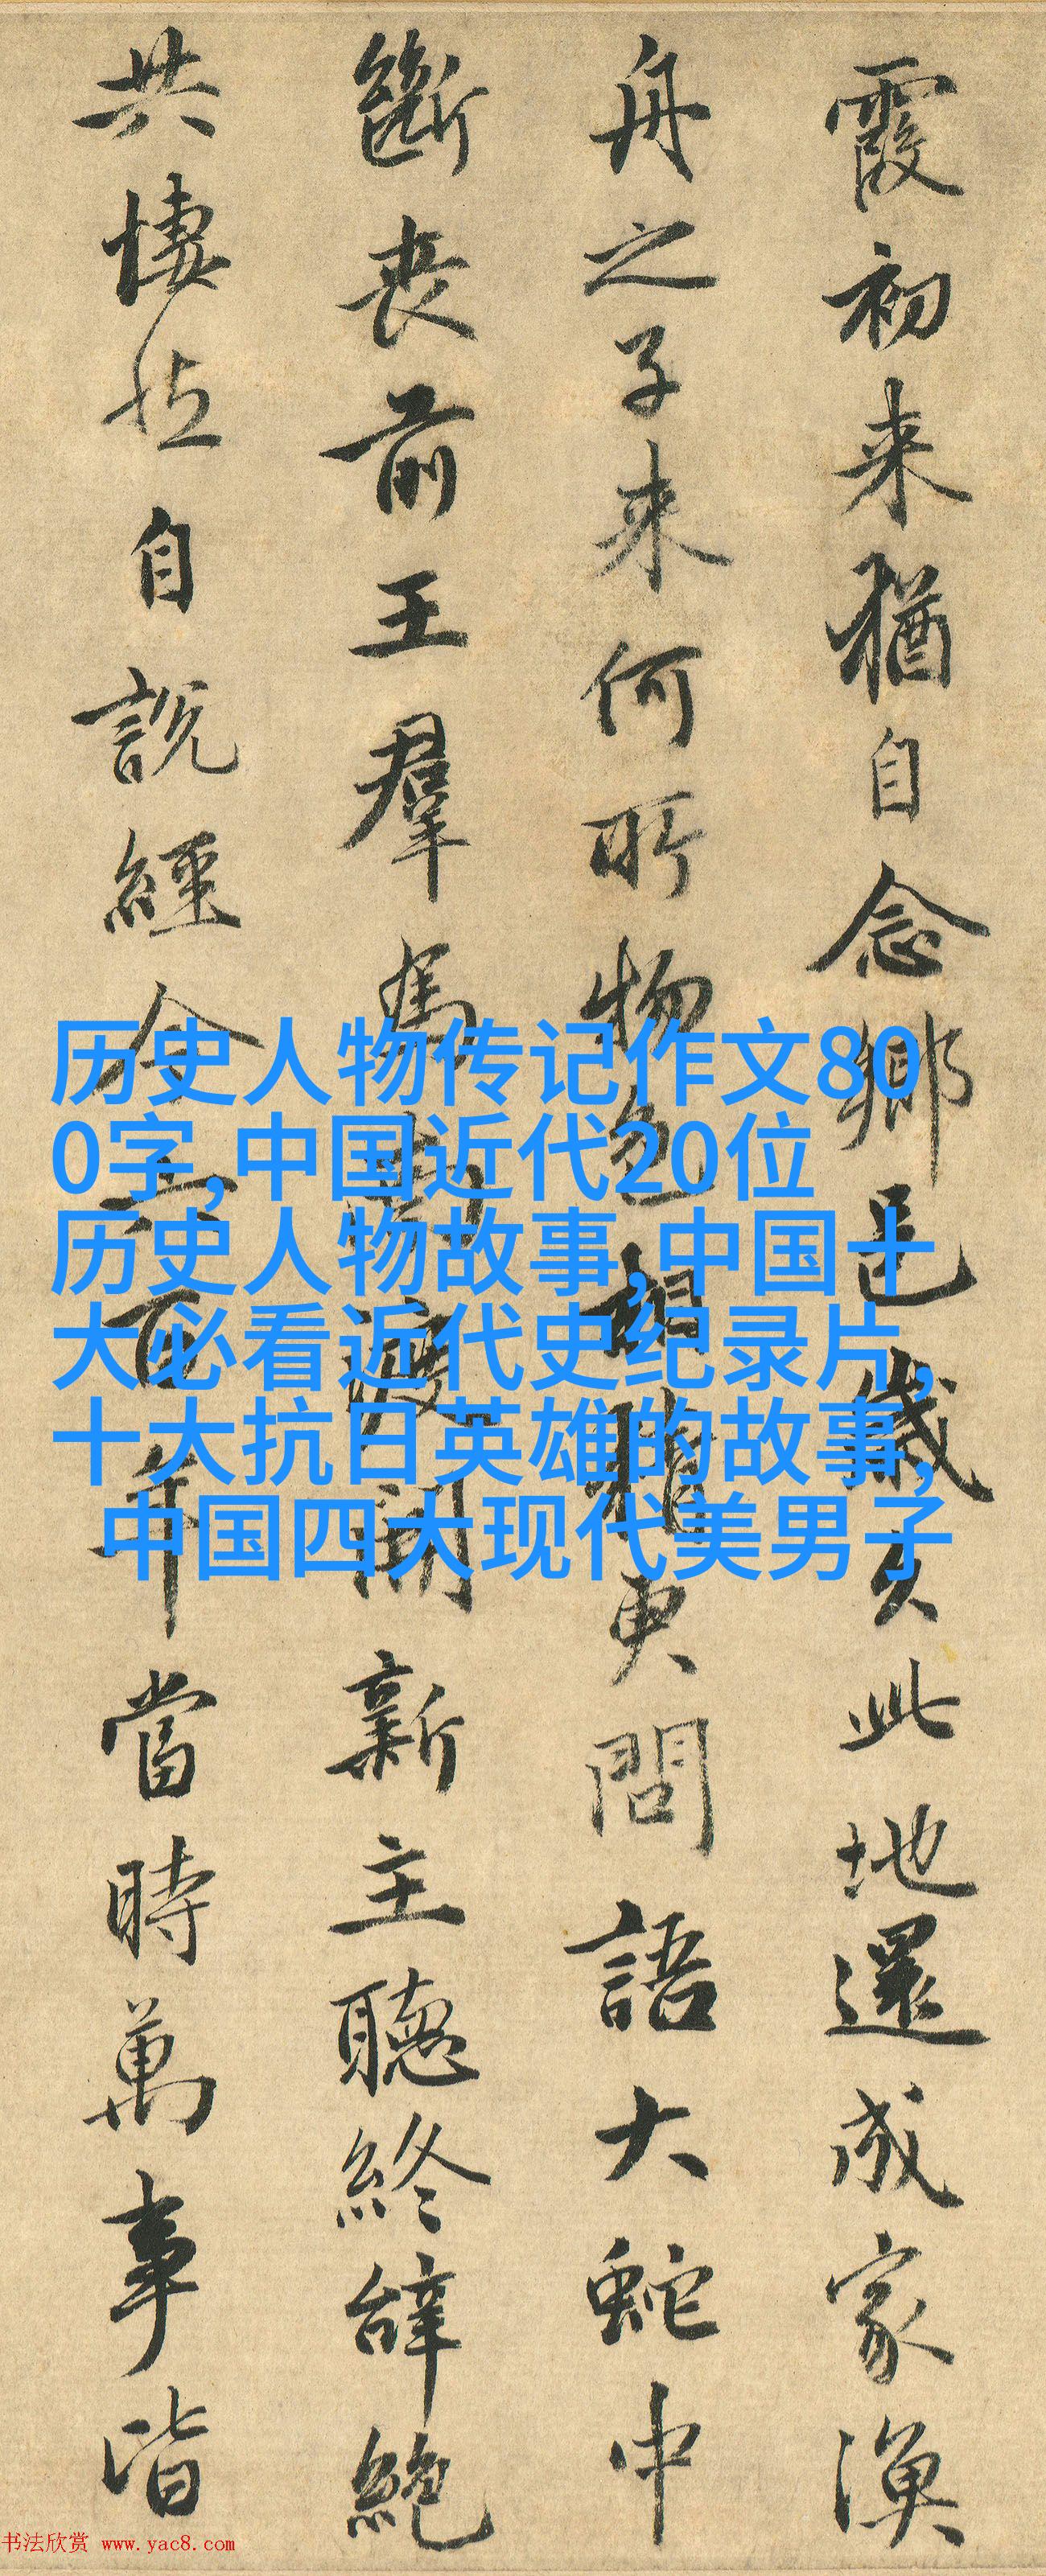 霞初来猶自念鄉邑歲久此地還成家漁
舟之子来何所物色相猜更問語大蛇中
斷喪前王羣馬南渡開新主聽終辭絕
共悽然自說經今六百年當時萬事皆
历史人物传记作文80
0字,中国近代20位
历史人物故事,中国十
大必看近代史纪录片,
十大抗日英雄的故事,
中国四大现代美男子
书法欣赏 www.yac8.com